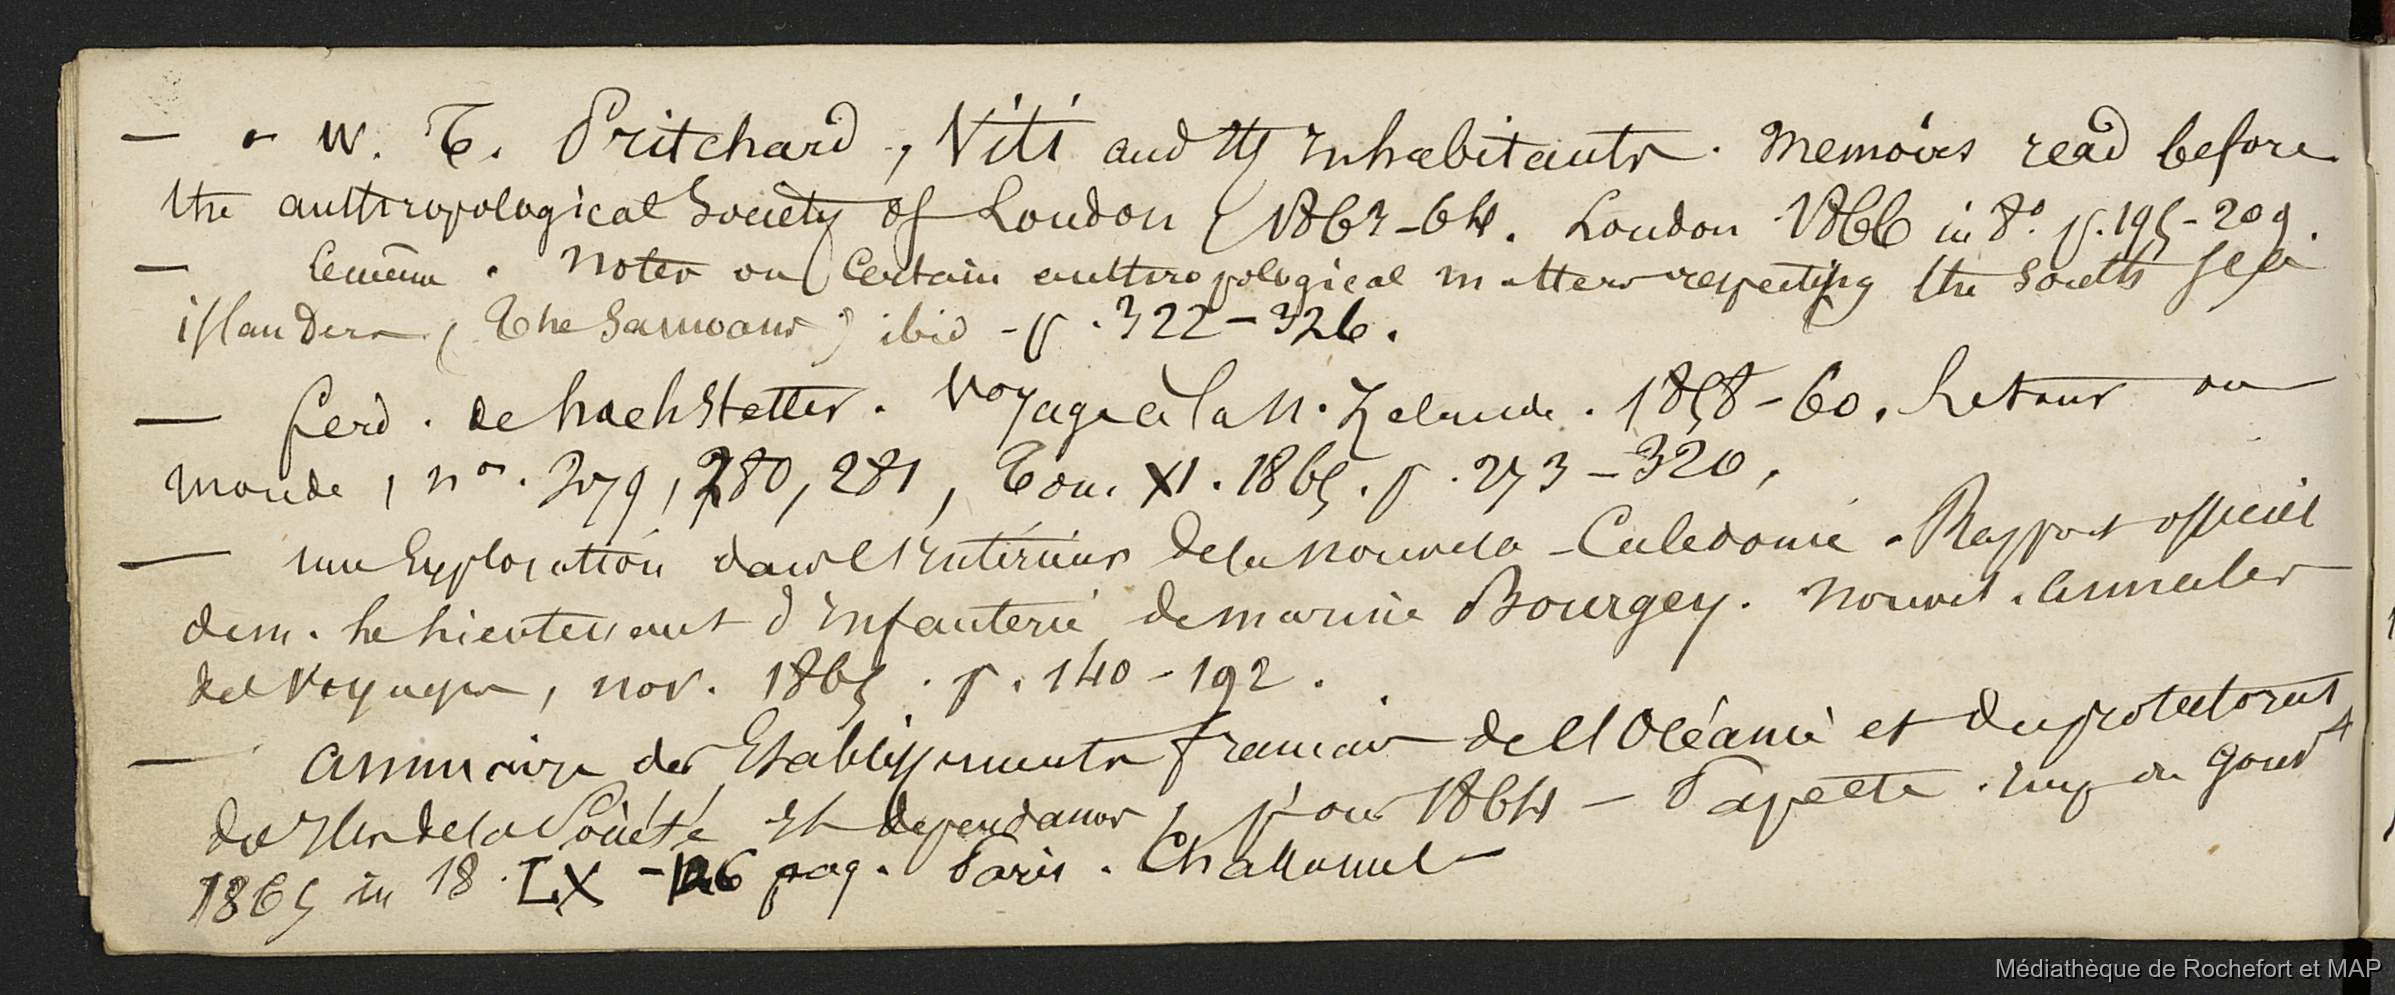 — W. T. Pritchard, Viti and its inhabitants. Memoirs read before
the anthropological Society of London (1863-64. London 1866 in 8°. p. 195-209.
— le même. Notes on certain anthropological matters respecting the South sea
islanders (The Samoans) ibid - p. 322-326.
— ferd. de hochstetter. Voyage à la N. Zelande. 1858-60. Le tour du
monde, nos. 279, 280, 281, Tom. XI. 1865. p. 273-320.
— une Exploration dans l'Intérieur de la Nouvelle-Caledonie. Rapport officiel
de m. le lieutenant d'infanterie de marine Bourgey. nouvel. annales
des Voyages, nov. 1865. p. 140-192.
— annuaire des Etablissements francais de l'Océanie et du protectorat
des Iles de la Société et dependances, pour 1864 — Papeete. imp du gouvt
1865 in 18. LX - pag. Paris. Challamel
Médiathèque de Rochefort et MAP